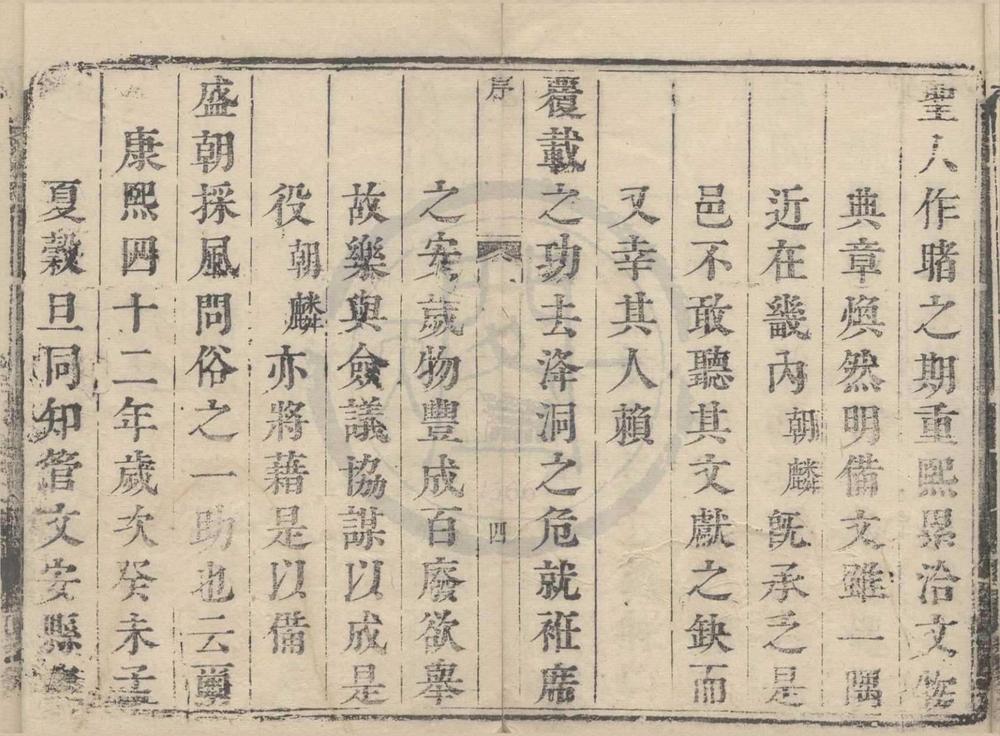 聖人作睹之期重熙累洽文物
典章煥然明備文雖一隅
近在畿內朝麟旣承乏是
邑不敢聽其文獻之缺而
又幸其人賴
覆載之功去洚洞之危就袵席
序 四
之安歲物豐成百廢欲舉
故樂與僉議協謀以成是
役朝麟亦將藉是以備
盛朝採風問俗之一助也云爾
康熙四十二年歲次癸未孟
夏穀旦同知管文安縣事